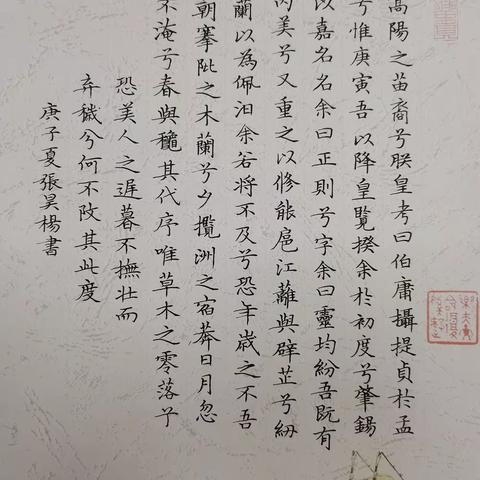 高陽之苗裔兮朕皇考曰伯庸攝提貞於孟
兮惟庚寅吾以降皇覽揆余於初度兮肇錫
以嘉名名余曰正則兮字余曰靈均紛吾既有
內美兮又重之以修能扈江蘺與辟芷兮紉
蘭以為佩汩余若將不及兮恐年歲之不吾
朝搴阰之木蘭兮夕攬洲之宿莽日月忽
不淹兮春與穐其代序唯草木之零落兮
恐美人之遲暮不撫壯而
弃穢兮何不改其此度
庚子夏張昊楊書